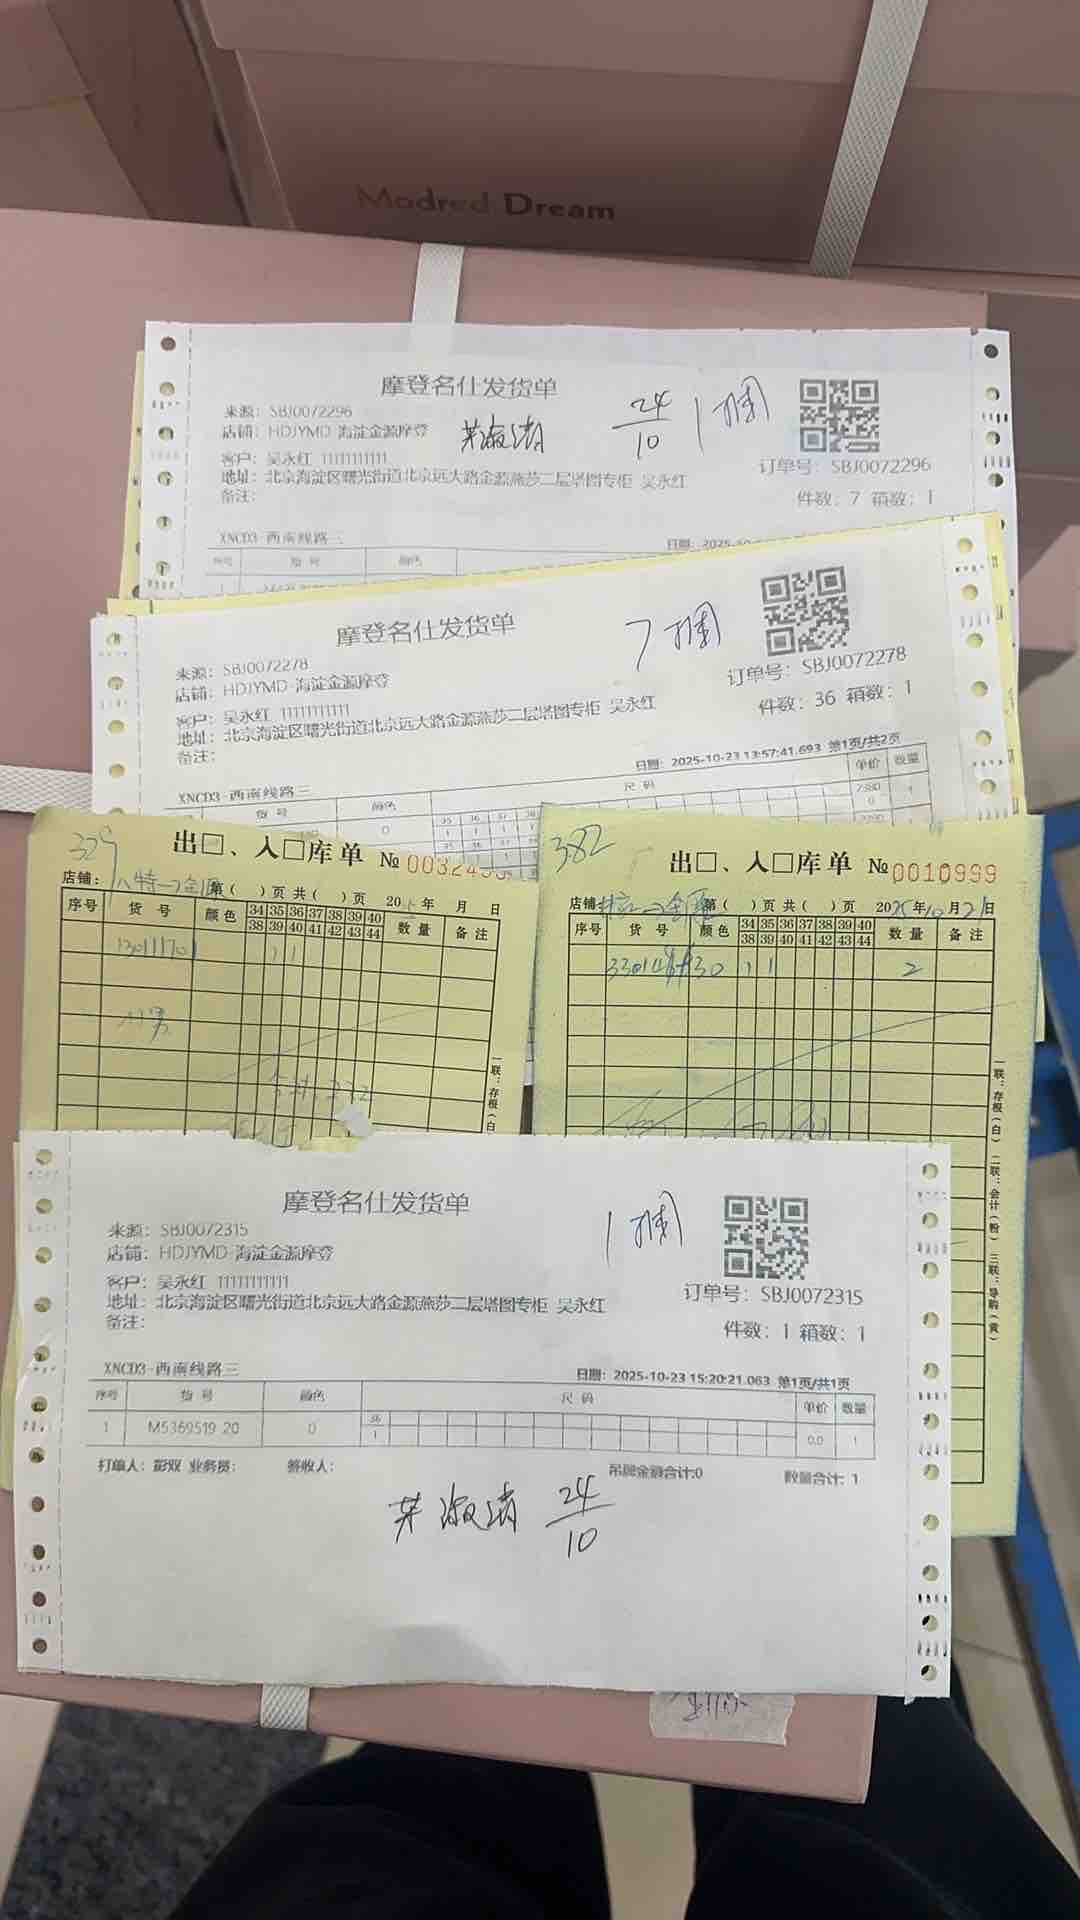 Modred Dream
摩登名仕发货单
来源: SBJ0072296
店铺: HDJYMD 海淀金源摩登
24/10
1捆
客户: 吴永红 11111111111
地址: 北京海淀区曙光街道北京远大路金源燕莎二层塔图专柜 吴永红
备注:
订单号: SBJ0072296
件数: 7 箱数: 1
XNCD3-西南线路三
日期: 2025-10
序号 货号 颜色
摩登名仕发货单
7捆
来源: SBJ0072278
店铺: HDJYMD 海淀金源摩登
客户: 吴永红 11111111111
地址: 北京海淀区曙光街道北京远大路金源燕莎二层塔图专柜 吴永红
备注:
订单号: SBJ0072278
件数: 36 箱数: 1
XNCD3-西南线路三
日期: 2025-10-23 13:57:41.693 第1页/共2页
货号 颜色 尺码 单价 数量
0
35 36 37 38
1 1 1 1
2380
0
1
329
出□、入□库单 № 0032493
店铺:
第( )页 共( )页 205年 月 日
序号 货号 颜色 34 35 36 37 38 39 40 数量 备注
38 39 40 41 42 43 44
130111701 1 1
一联:存根(白)
382
出□、入□库单 №0010999
店铺
第( )页 共( )页 2025年10月21日
序号 货号 颜色 34 35 36 37 38 39 40 数量 备注
38 39 40 41 42 43 44
1 1 2
一联:存根(白) 二联:会计(粉) 三联:导购(黄)
摩登名仕发货单
1捆
来源: SBJ0072315
店铺: HDJYMD 海淀金源摩登
客户: 吴永红 11111111111
地址: 北京海淀区曙光街道北京远大路金源燕莎二层塔图专柜 吴永红
备注:
订单号: SBJ0072315
件数: 1 箱数: 1
XNCD3-西南线路三
日期: 2025-10-23 15:20:21.063 第1页/共1页
序号 货号 颜色 尺码 单价 数量
1 M5369519 20 0 36 1 0.0 1
打单人: 彭双 业务员: 签收人: 吊牌金额合计:0 数量合计: 1
24/10